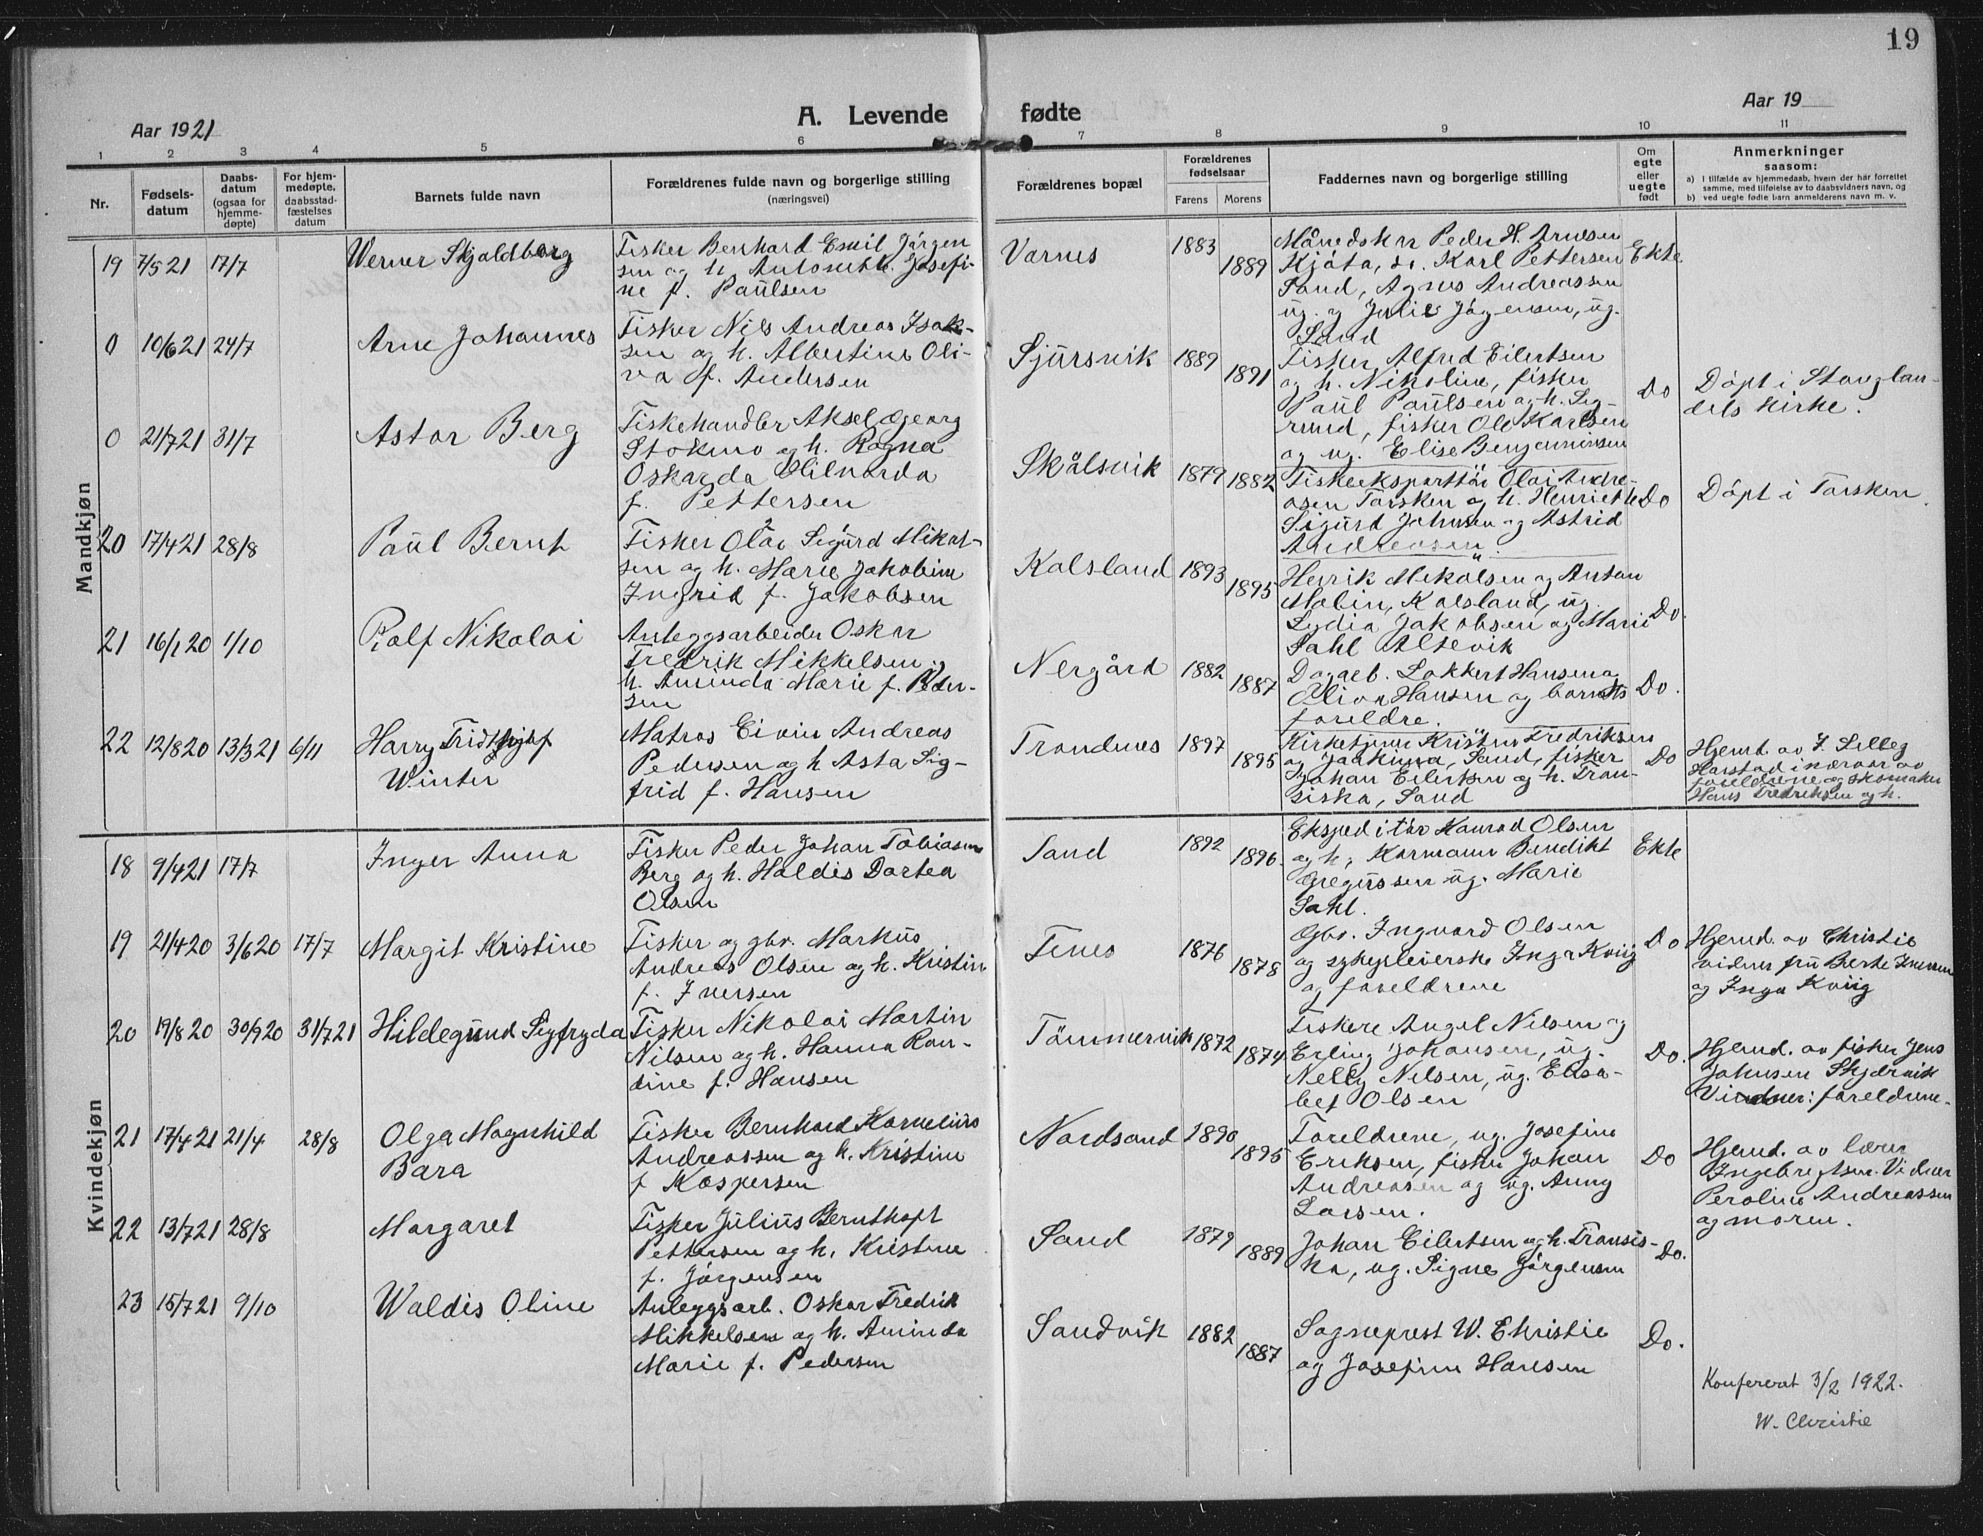 19
Aar 1921
A. Levende fødte
Aar 19
1 2 3 4 5 6 7 8 9 10 11
Nr.
Fødsels-
datum
Daabs-
datum
(ogsaa for
hjemme-
døpte)
For hjem-
medøpte,
daabsstad-
fæstelses
datum
Barnets fulde navn
Forældrenes fulde navn og borgerlige stilling
(næringsvei)
Forældrenes bopæl
Forældrenes
fødselsaar
Farens Morens
Faddernes navn og borgerlige stilling
Om
egte
eller
uegte
født
Anmerkninger
saasom:
a) i tilfælde av hjemmedaab, hvem der har forrettet
samme, med tilføielse av to daabsvidners navn, og
b) ved uegte fødte barn anmelderens navn m. v.
Mandkjøn
19 7/5 21 17/7
Werner Skjoldborg
Fisker Bernhard Emil Jørgen
sen og h. Josefi-
ne f. Paulsen
Varnes
1883
1889
Peder H. Arnesen
Kjøta, do. Karl Pettersen
Sand, Agnes Andreassen
ug. og Julie Jørgensen, ug.
Sand
Ekte
0 10/6 21 24/7
Arne Johannes
Fisker Nils Andreas Isak-
sen og h. Albertine Oli-
va f. Andersen
Sjursvik
1889
1891
Fisker Alfred Eilertsen
og h. Nikoline, fisker
Paul Paulsen og h. Sig-
rund, fisker Ole Karlsen
og ug. Elise Benjaminsen
Do
Døpt i Stonglan-
dets kirke.
0 21/7 21 31/7
Astor Berg
Fiskehandler Aksel Georg
Stokmo og h. Ragna
Oskarda Hilvarda
f. Pettersen
Skålsvik
1879
1882
Fiskeeksportør Olai Andre-
asen Torsken og h. Henriette
Sigurd Johnsen og Astrid
Andreasen.
Do
Døpt i Torsken.
20 17/4 21 28/8
Paul Bernt
Fisker Olai Sigurd Mikal-
sen og h. Marie Jakobine
Ingrid f. Jakobsen
Kalsland
1893
1895
Henrik Mikalsen og Anton
Malin, Kalsland, ug.
Lydia Jakobsen og Marie
Dahl Altevik
Do.
21 16/1 20 1/10
Rolf Nikolai
Anleggsarbeider Oskar
Fredrik Mikkelsen og
h. Aminda Marie f. Peder-
sen
Nergård
1882
1887
Dagarb. Lokkert Hansen og
Oliva Hansen og barnets
foreldre.
Do.
22 12/8 20 13/3 21 6/11
Harry Fridthjof
Winter
Matros Eivin Andreas
Pedersen og h Asta Sig-
frid f. Hansen
Trondenes
1897
1895
Kirketjener Kristen Fredriksen
og Jaakina, Sand, fisker
Johan Eilertsen og h. Fran-
siska, Sand
Do
Hjemd. av J. Lilleg
Harstad i nærvær av
foreldrene og skomaker
Hans Fredriksen og h.
Kvindekjøn
18 9/4 21 17/7
Inger Anna
Fisker Peder Johan Tobiasen
Berg og h. Haldis Dortea
Olsen
Sand
1892
1896.
Ekspeditør Konrad Olsen
og h, Kormann Benedikt
Gregussen ug. Marie
Dahl.
Ekte
19 21/4 20 3/6 20 17/7
Margit Kristine
Fisker og gbr. Markus
Andreas Olsen og h. Kristine
f. Iversen
Finnes
1876
1878
Gbr. Ingvard Olsen
og sykepleierske Inga Kviig
og foreldrene
Do
Hjemd. av Christie
vidner fru Berte Iversen
og Inga Kviig
20 19/8 20 30/9 20 31/7 21
Hildegund Sigfryda
Fisker Nikolai Martin
Nilsen og h. Hanna Ran-
dine f. Hansen
Tømmervik
1872
1874
Fiskere Angel Nilsen og
Erling Johansen, ug.
Nelly Nilsen, ug. Elisa-
bet Olsen
Do.
Hjemd. av fisker Jens
Johnsen Skjærvik
Vidner: foreldrene.
21 17/4 21 21/4 28/8
Olga Magnhild
Bara
Fisker Bernhard Kornelius
Andreassen og h. Kristine
f Kaspersen
Nordsand
1890
1895
Foreldrene, ug. Josefine
Eriksen, fisker Johan
Andreasen og ug. Anny
Larsen.
Do
Hjemd. av lærer
Ingebregtsen. Vidner
Peroline Andreassen
og moren.
22 13/7 21 28/8
Margaret
Fisker Julius Bernthoft
Pettersen og h. Kristine
f. Jørgensen
Sand
1879
1889
Johan Eilertsen og h. Fransis-
ka, ug. Signe Jørgensen
Do.
23 15/7 21 9/10
Waldis Oline
Anleggsarb. Oskar Fredrik
Mikkelsen og h. Aminda
Marie f. Pedersen
Sandvik
1882
1887
Sogneprest W. Christie
og Josefine Hansen
Do.
Konfererat 3/2 1922.
W. Christie